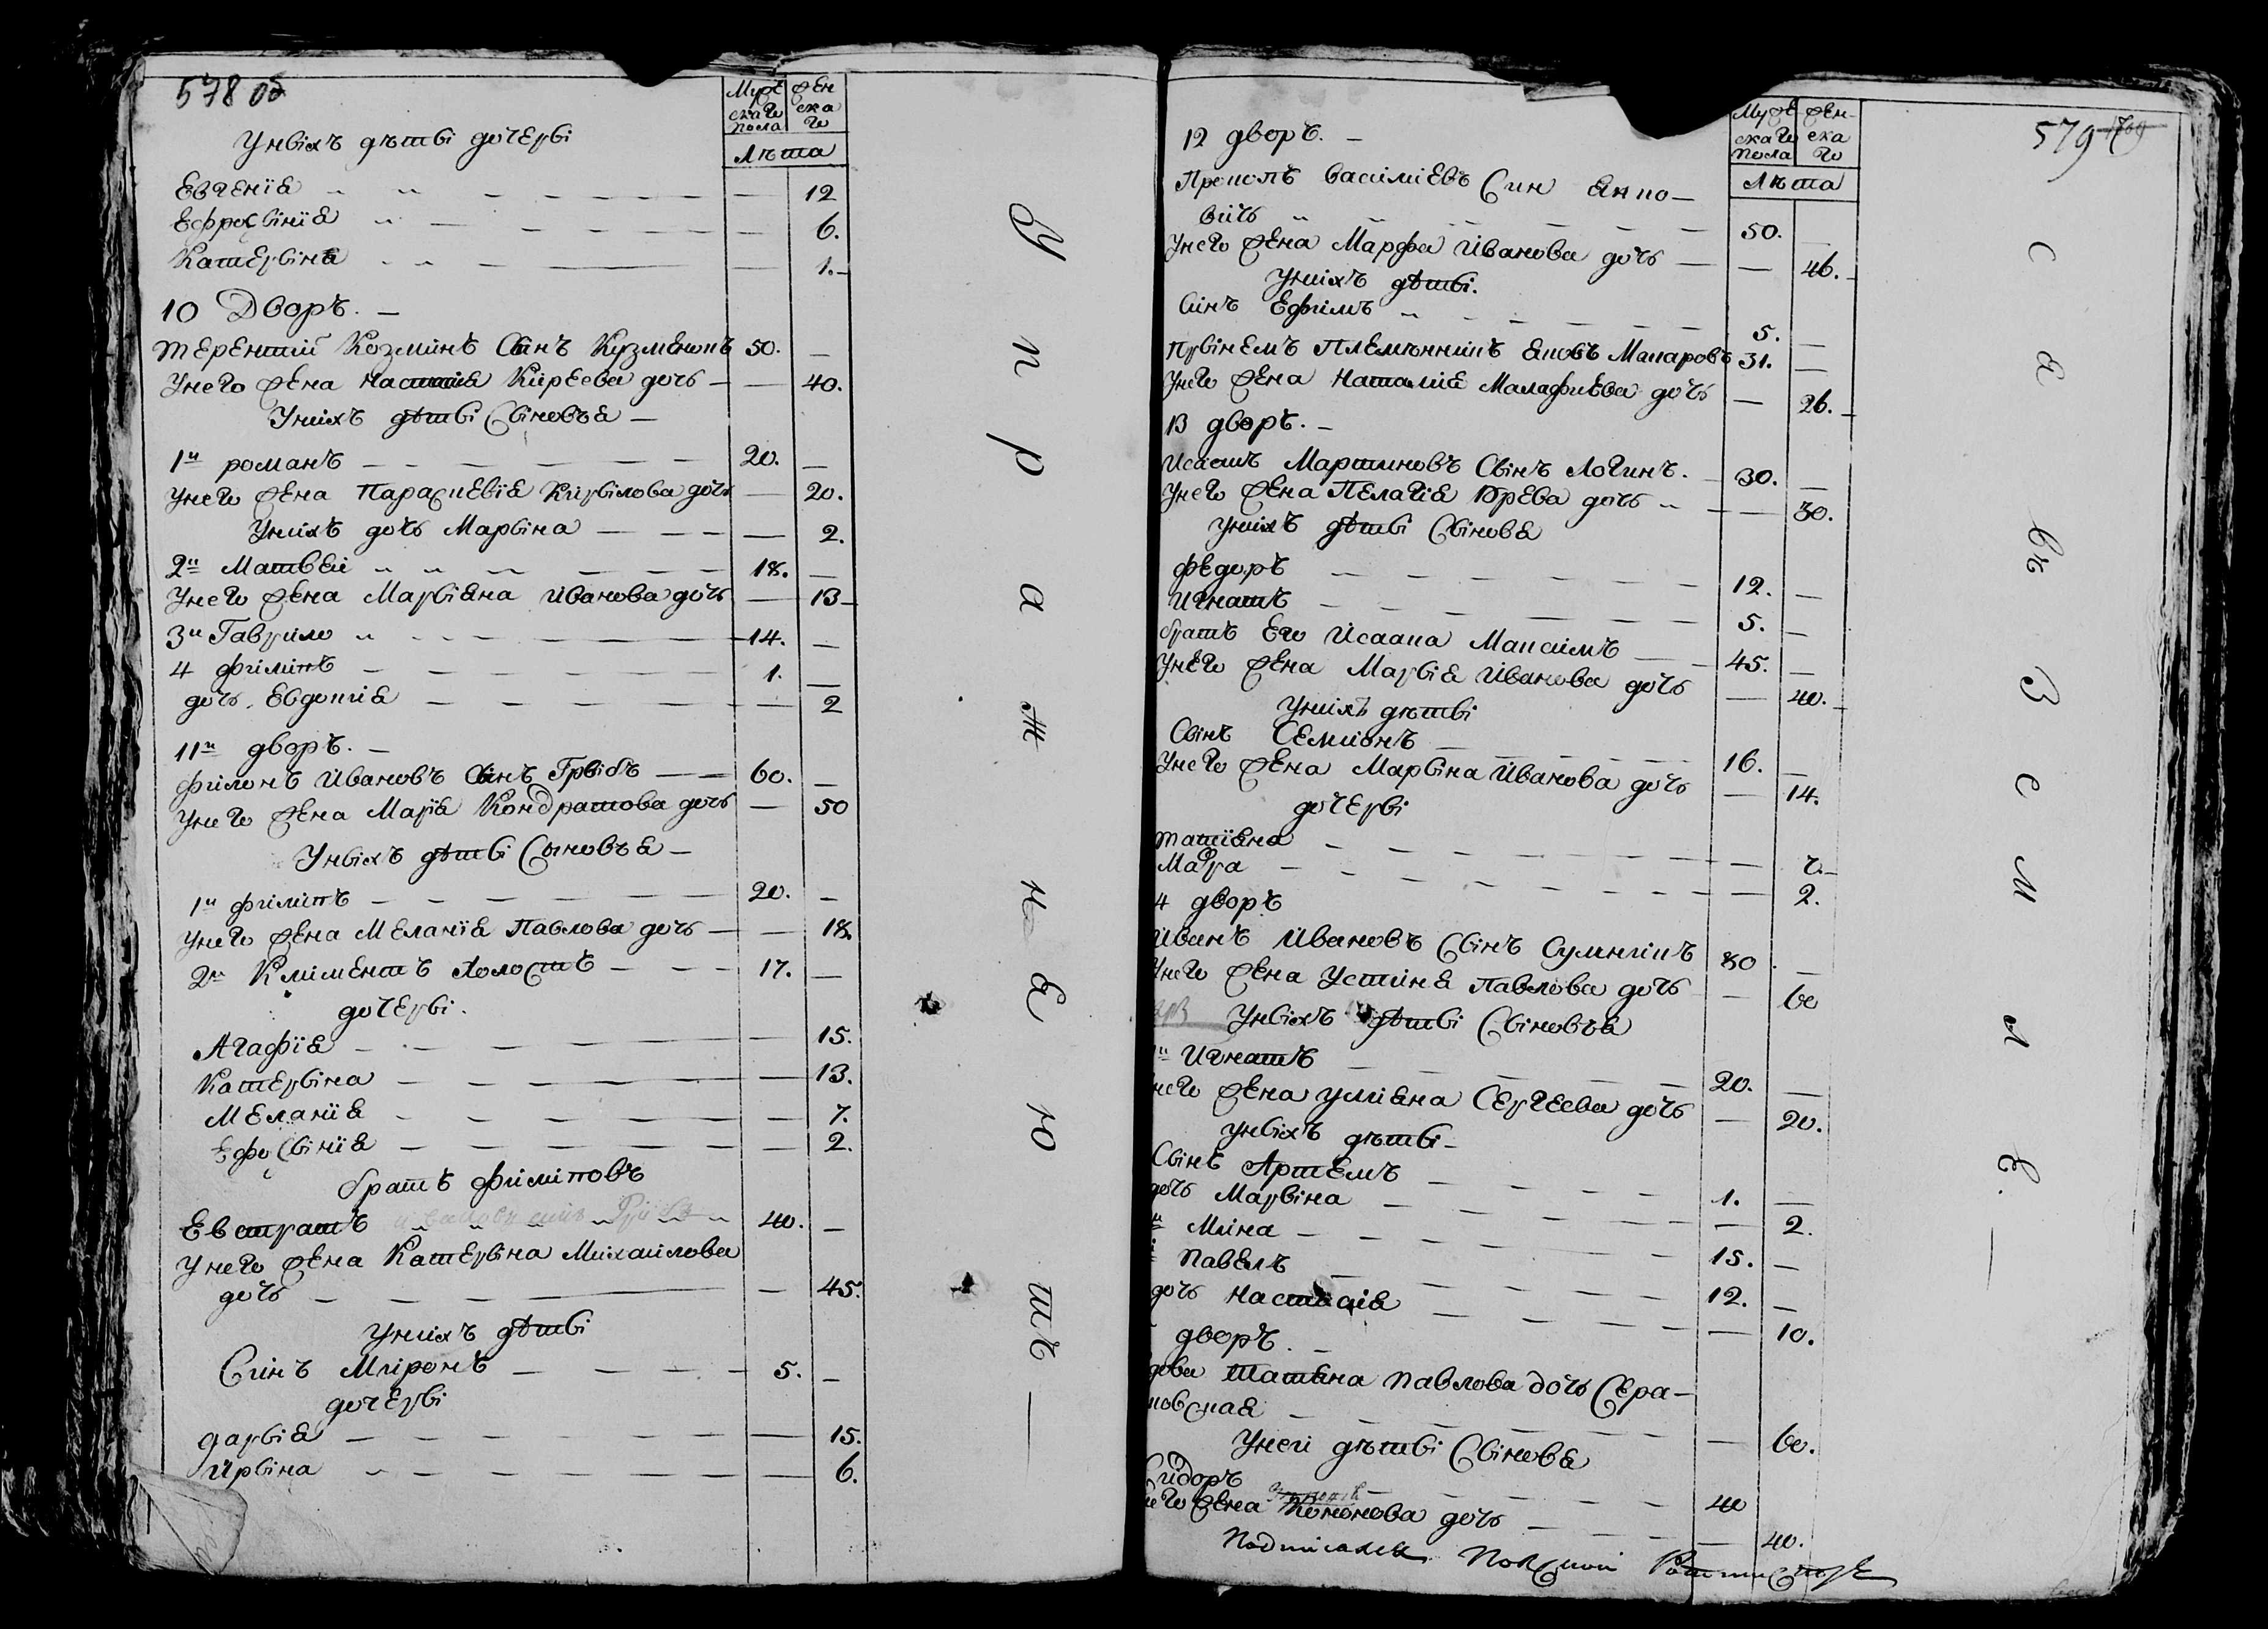 578 об
Муже
скаго
пола
жен
ска
го
Лѣта
Унвіхъ дѣтві дочерві
Евгенія 12
Ефросвінія 6.
Катервіна 1.
10 Дворъ.
Терентій Козминъ Свінъ Кузменокъ 50.
Унего жена Настасія Кирѣева дочь 40.
Унихъ дѣтві Свіновъя
1й романъ 20.
Унего жена Параскевія Кирвілова дочь 20.
Унихъ дочь Марвіна 2.
2й Матвей 18.
Унего жена Марвіяна Иванова дочь 13
3й Гаврило 14.
4 филипъ 1.
дочь Евдокия 2
11й дворъ.
филонъ Ивановъ Свінъ Грвібъ 60.
Унего жена Марія Кондратова дочь 50
Унвіхъ дѣтві Сыновъя
1й филипъ 20.
Унего жена Меланія Павлова дочь 18.
2й Климентъ холостъ 17.
дочерві.
Агафія 15.
Катервіна 13.
Меланія 7.
Ефросвінія 2.
братъ филиповъ
Евстратъ 40.
Унего жена Катервіна Михайлова
дочь 45.
Унихъ дѣтві
Синъ Миронъ 5.
дочерві
дарвія 15.
Ирвіна 6.
У п р а ж н я ю т ъ
579
Муже
скаго
пола
жен
ска
го
Лѣта
12 дворъ.
Прокопъ Василіевъ Син Янко
вичъ 50.
Унего жена Марфа Иванова дочь 46.
Унихъ дѣтві.
Синъ Ефимъ 5.
Првінемъ Племѣнникъ Яковъ Макаровъ 31.
Унего жена Наталия Малафиева дочь 26.
13 дворъ.
Исаакъ Мартиновъ Свінъ Логинъ. 30.
Унего жена Пелагія Юрева дочь 30.
Унихъ дѣтві Свіновя
федоръ 12.
Игнатъ 5.
братъ Его Исаака Максимъ 45.
Унего жена Марвія Иванова дочь 40.
Униxъ дѣтві
Свінъ Семионъ 16.
Унего жена Марвіна Иванова дочь 14.
дочерві
татіяна
Мавра 2.
4 дворъ
Иванъ Ивановъ Свінъ Сумникъ 80
Унего жена Устиня Павлова дочь 60
Унвіхъ дѣтві Свіновъя
Игнатъ 20.
него жена Улияна Сергеева дочь 20.
Унвіхъ дѣтві
Свінъ Артемъ 1.
дочь Марвіна 2.
Мина 15.
Павелъ 12.
дочь Настасія 10.
дворъ.
дова Татяна Павлова дочь Сера
ковская 60.
Унеи дѣтві Свіновя
Сидоръ 40
него жена Кононова дочь 40.
Подписался
С а в ъ З е м л е.